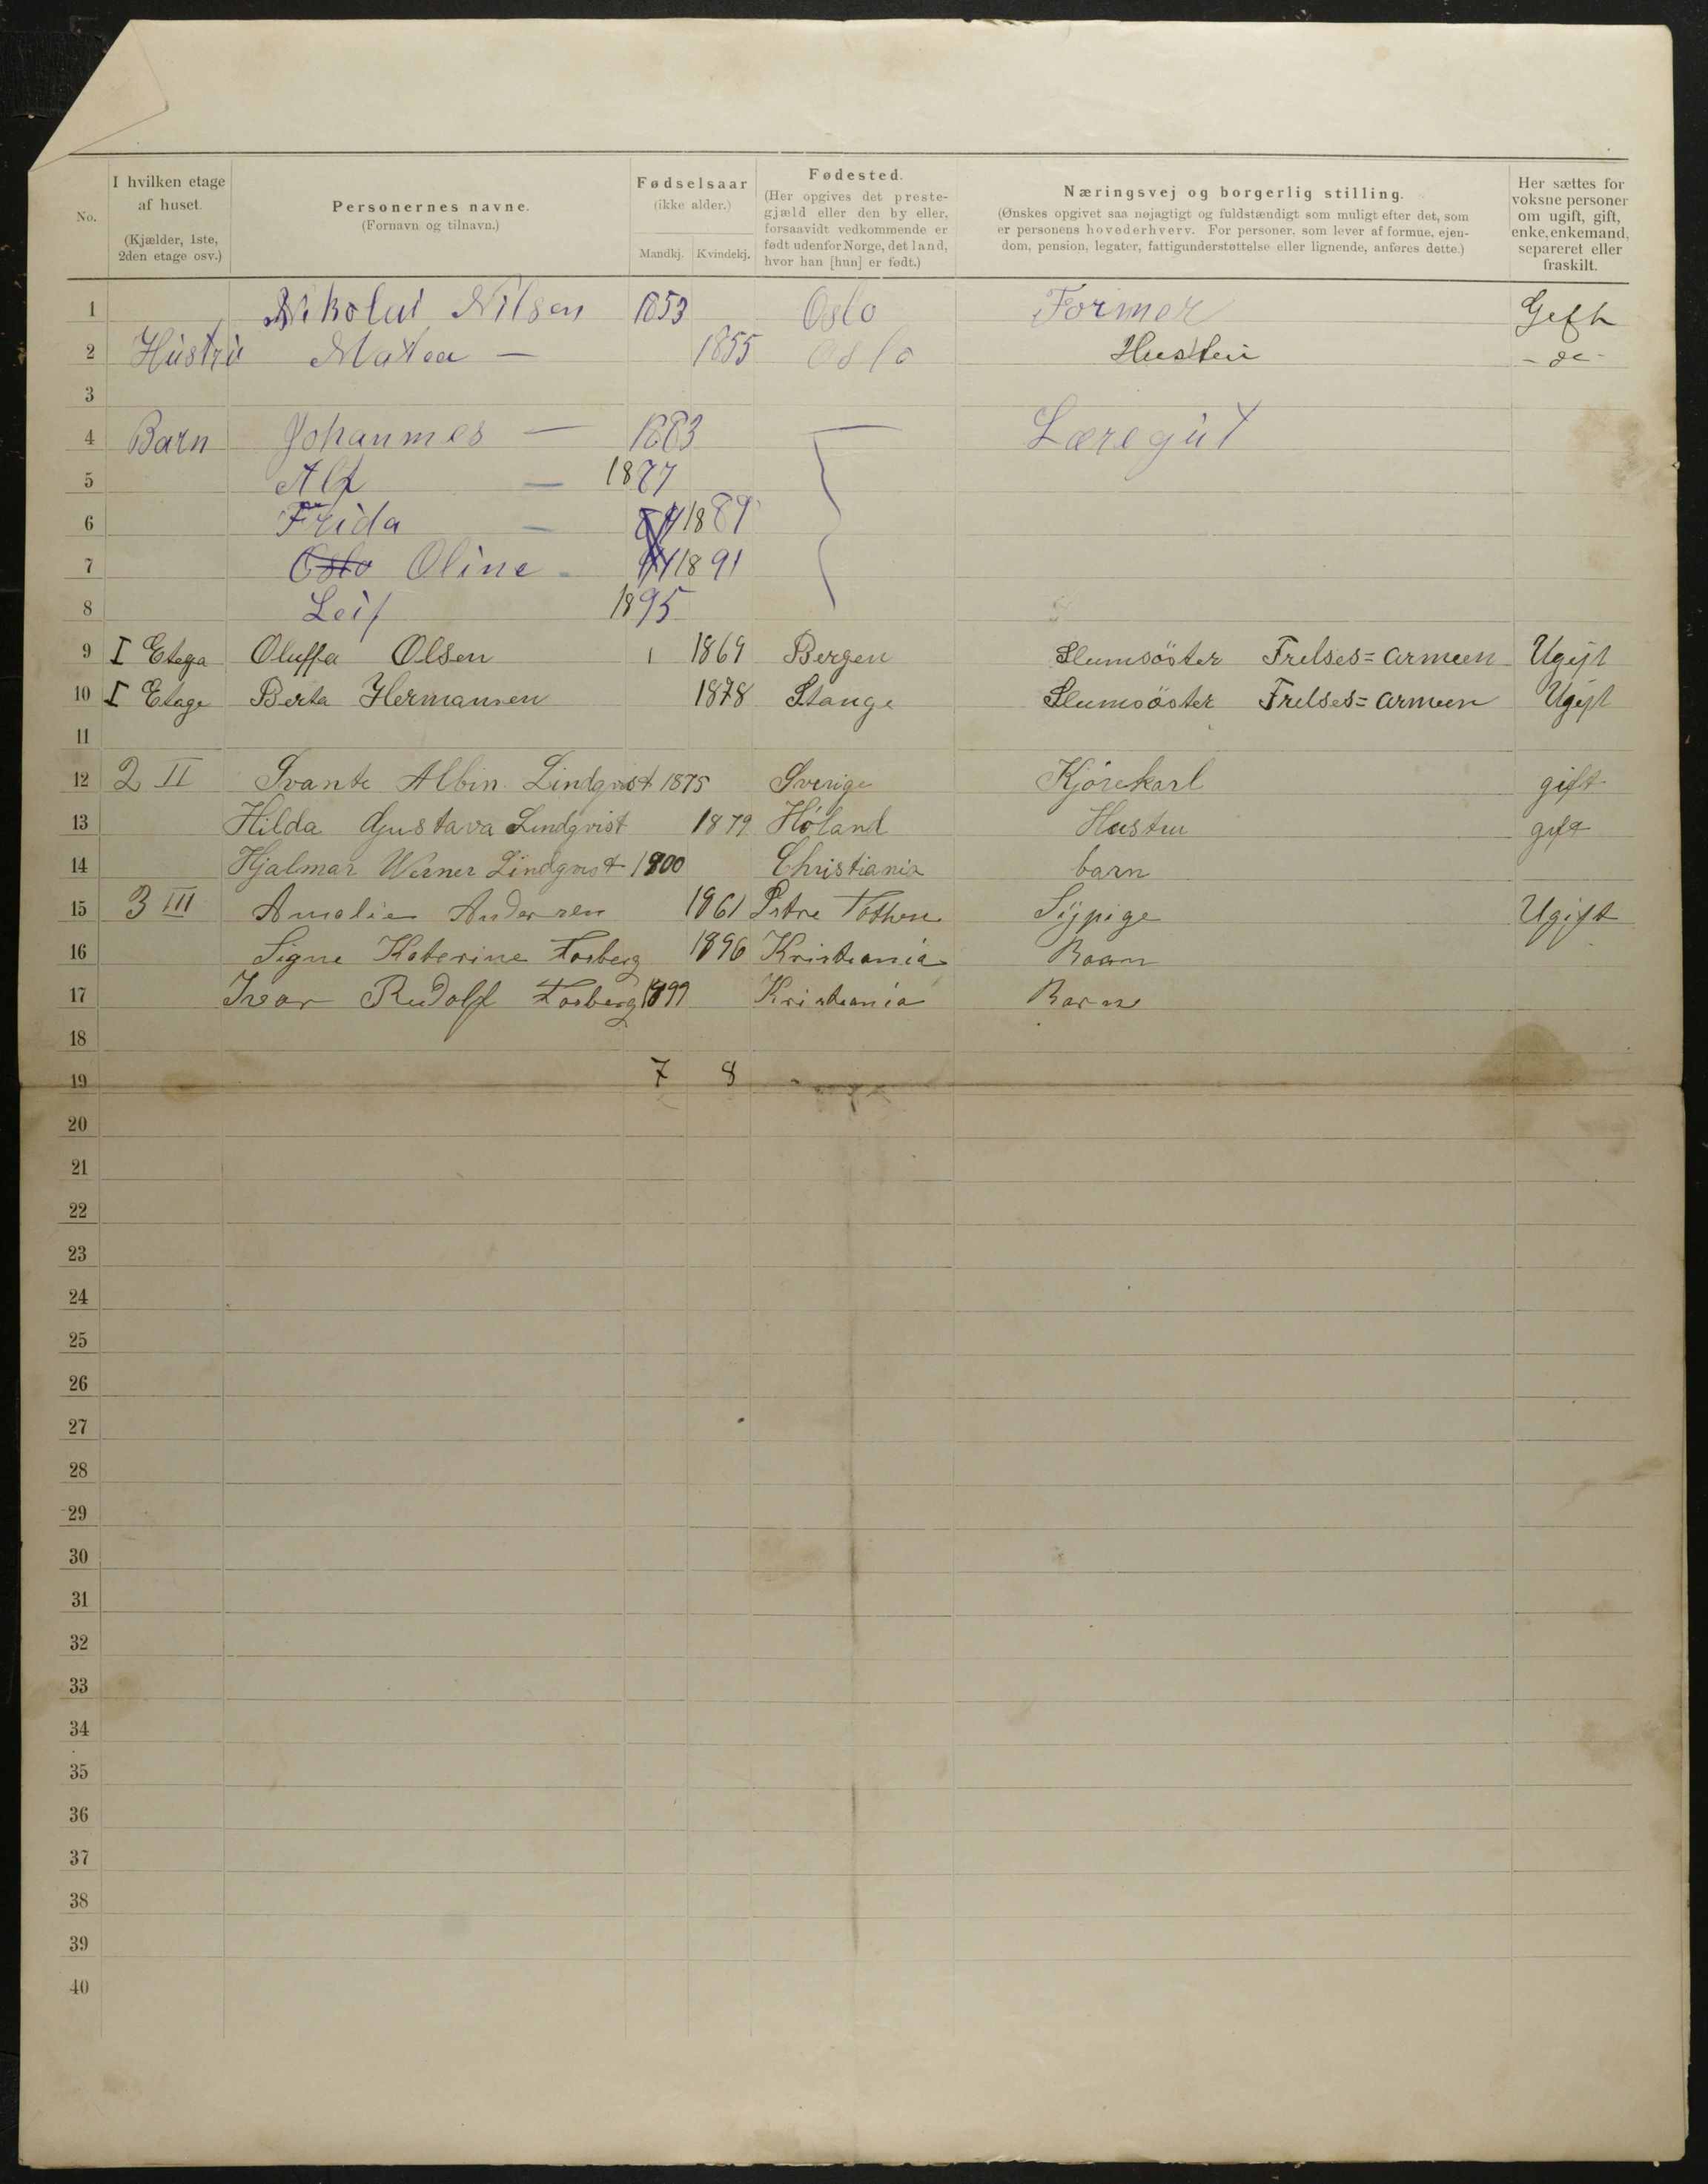 No. I hvilken etage af huset. (Kjælder, 1ste, 2den etage osv.) Personernes navne. (Fornavn og tilnavn.) Fødselsaar (ikke alder.) Mandkj. Kvindekj. Fødested. (Her opgives det prestegjæld eller den by eller, forsaavidt vedkommende er født udenfor Norge, det land, hvor han [hun] er født.) Næringsvej og borgerlig stilling. (Ønskes opgivet saa nøjagtigt og fuldstændigt som muligt efter det, som er personens hovederhverv. For personer, som lever af formue, ejendom, pension, legater, fattigunderstøttelse eller lignende, anføres dette.) Her sættes for voksne personer om ugift, gift, enke, enkemand, separeret eller fraskilt.
1 Nikolai Nilsen 1853 Oslo Former Gift
2 Hüstrü Matea — 1855 Oslo Hustru - do -
3
4 Barn Johannes — 1883 — Læregüt
5 Alf — 1877
6 Frida — 1889
7 Oslo Oline - 1891
8 Leif 1895
9 I Etega Oluffa Olsen 1 1869 Bergen Slumsöster Frelses=armeen Ugift
10 I Etage Berta Hermansen 1878 Stange Slumsöster Frelses=armeen Ugift
11
12 2 II Svante Albin Lindqvist 1875 Sverige Kjörekarl gift
13 Hilda Gustava Lindqvist 1879 Höland Hustru gift
14 Hjalmar Werner Lindqvist 1900 Christiania barn
15 3 III Amalie Andersen 1861 Østre Tothen Sÿpige Ugift
16 Signe Katerine Forberg 1896 Kristiania Baarn
17 Ivar Rudolf Forberg 1899 Kristiania Barn
18
19 7 8
20
21
22
23
24
25
26
27
28
29
30
31
32
33
34
35
36
37
38
39
40